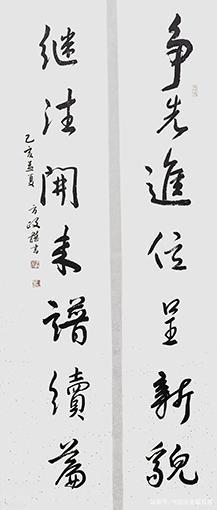 争先進位呈新貌
继往開来譜續篇
乙亥孟夏
方政雄书